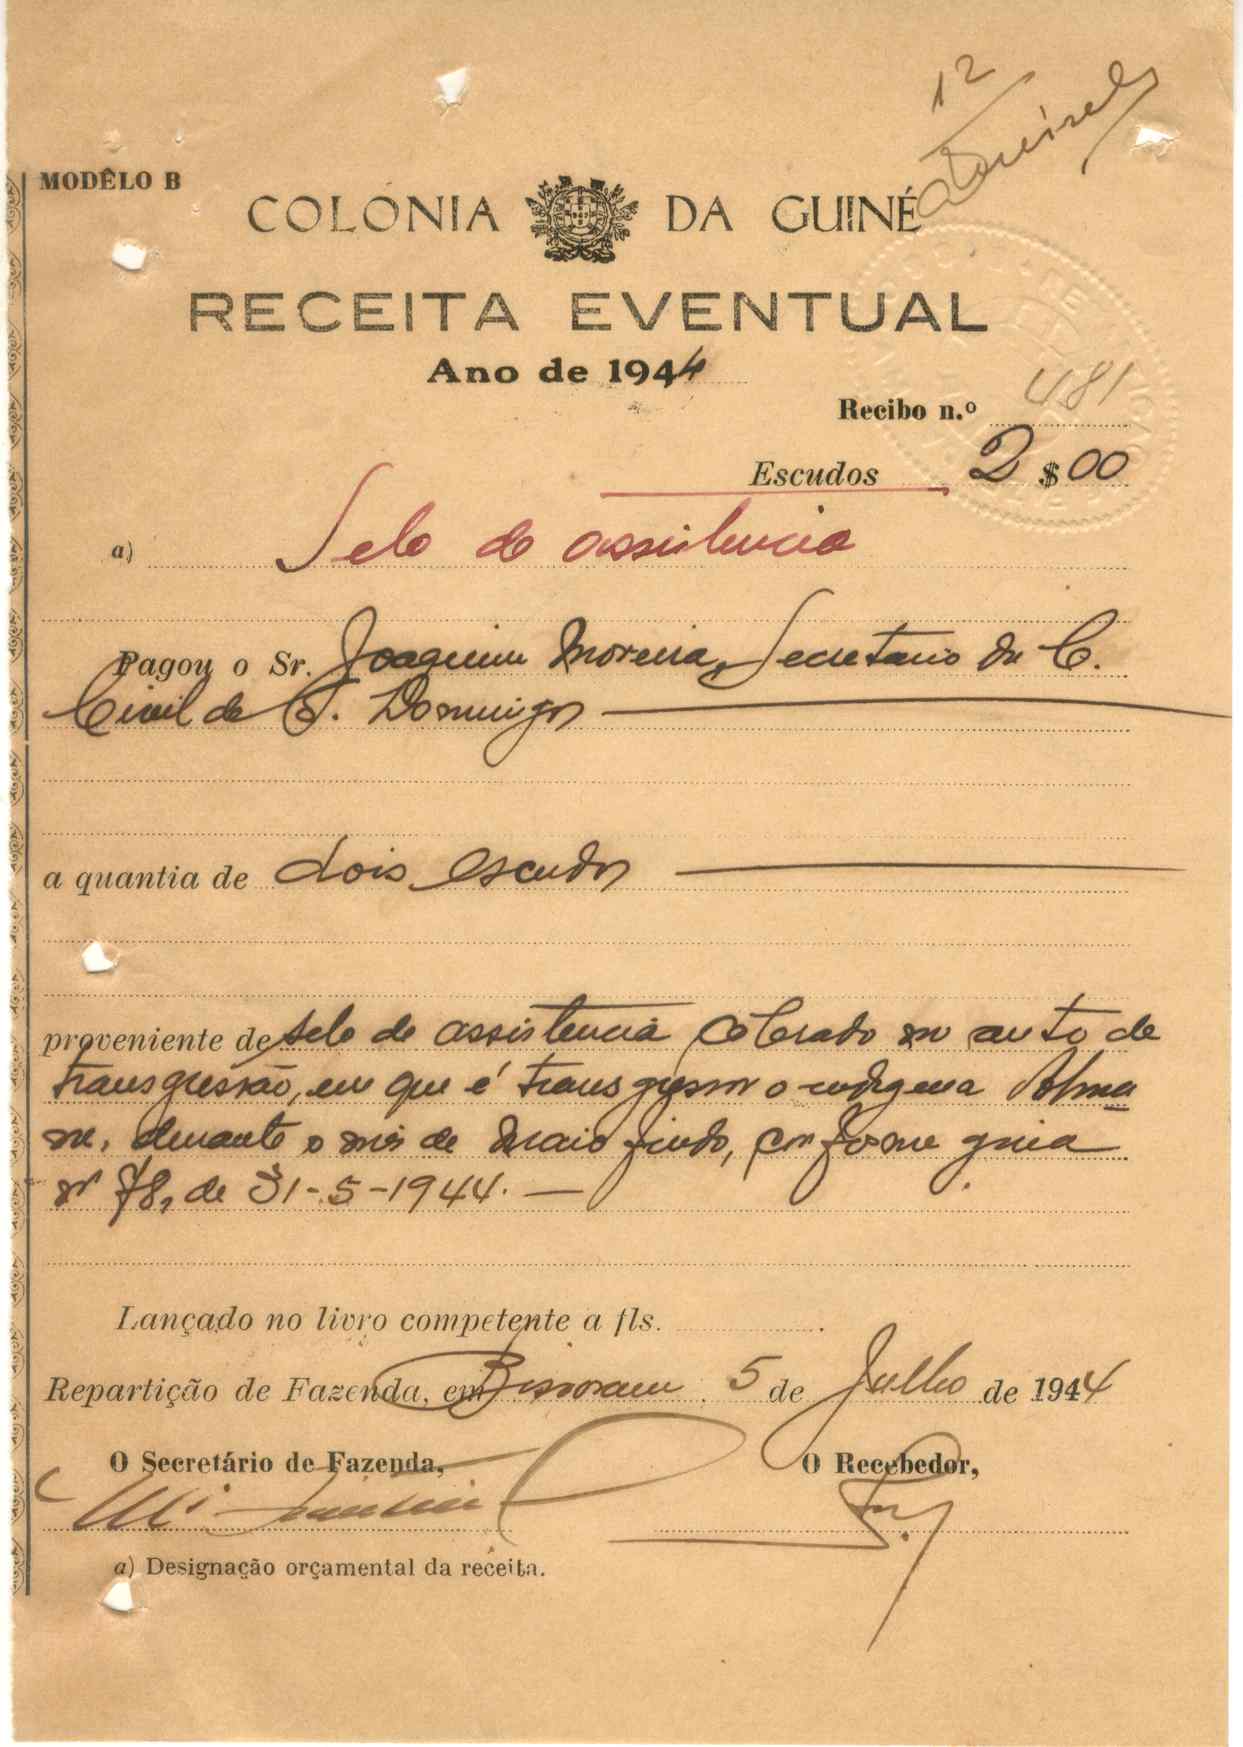 12
MODÊLO B
COLÓNIA DA GUINÉ
RECEITA EVENTUAL
Ano de 1944
Recibo n.º 481
Escudos 2 $ 00
a) Selo de assistencia
Pagou o Sr. Joaquim Moreira, Secretario da C.
Civil de S. Domingos
a quantia de dois escudos
proveniente de selo de assistencia cobrado no auto de
transgressão, em que é transgressor o indigena
durante o mês de Maio findo, conforme guia
nº 78, de 31-5-1944.
Lançado no livro competente a fls.
Repartição de Fazenda, em Bissoram, 5 de Julho de 1944
O Secretário de Fazenda,
O Recebedor,
a) Designação orçamental da receita.